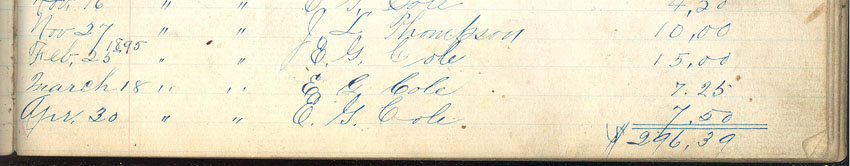 Nov. 16 " " E. G. Cole 4,20
Nov 27 " " J. L. Thompson 10,00
Feb, 25 1895 " " E. G. Cole 15,00
March 18 " " E G Cole 7.25
Apr. 30 " " E. G. Cole 7.50
$296,39